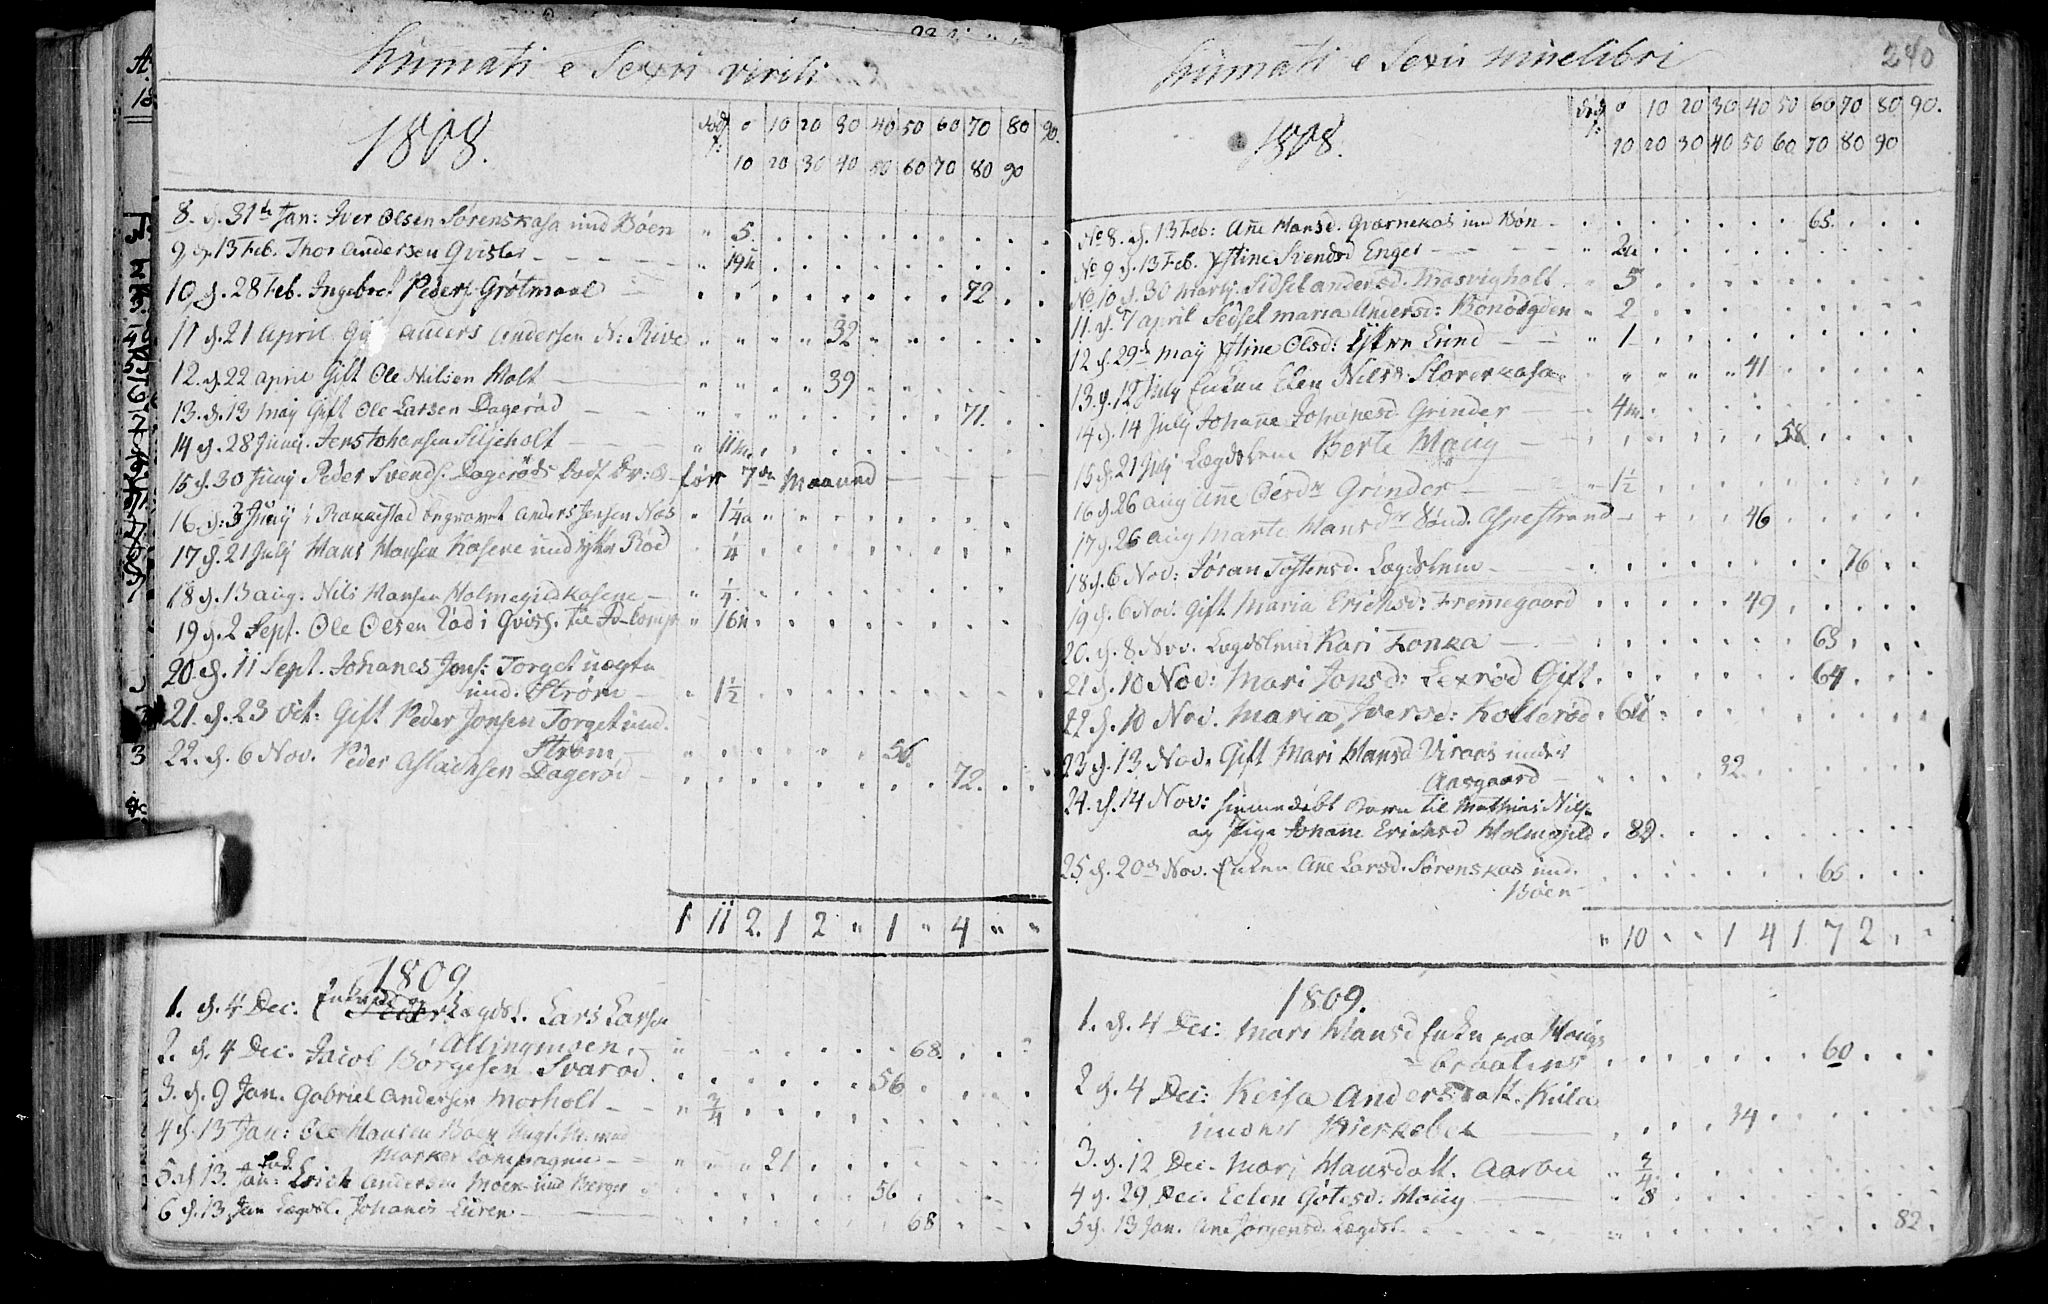 humati e Sexu virili
1808.
dødf: 0 10 20 30 40 50 60 70 80 90.
10 20 30 40 50 60 70 80 90
8. d. 31te Jan: Iver Olsen Sørenskasa und Böen " 5.
9. d. 13 Feb. Thor Andersen Qvisler " 19u
10. d. 28 Feb. Ingebret Peders. Grötmoal 72
11 d. 21 April Gift Anders Andersen N: Rive 32
12. d. 22 April Gift Ole Nilsen Holt 39
13. d. 13 May Gift Ole Larsen Dagerød 71.
14 d. 28 Juny. Jens Johansen Siljeholt " 11m.
15 d. 30 Juny Peder Svends. Dagerøds for 7de Maaned
16. d. 3 July i Rakkestad begravet Anders Jensen Næs " 1¼a
17 d. 21 July Hans Hansen Kasene und Røed " ¼
18 d. 13 Aug. Nils Hansen Holmegildkasene " ¼
19 d. 2 Sept. Ole Olsen Rød i Qvisl. " 16u
20 d. 11 Sept. Johanes Jons: Torget uægte
und. Strøm " 1½
21. d. 23 Oct: Gift Peder Jonsen Torget und.
Strøm 56.
22. d. 6 Nov. Peder Aslachsen Dagerød 72.
1 11 2. 1 2 " 1 " 4 " "
1809
1. d. 4 Dec: Lægdsl. Lars Larsen
Allingmoen 68.
2. d. 4 Dec. Jacob Börgesen Svarød 56
3. d. 9 Jan. Gabriel Andersen Morholt " ¾
4 d. 13 Jan: Ole Hansen Böen
Marker Compagnie 21
5 d. 13. Jan: Erich Andersen Moen und Berger 56
6 d. 13 Jan Lægdsl. Johanis Lüren 68
humati e Sexu muliebri
240
1808.
dødf: 0 10 20 30 40 50 60 70 80 90.
10 20 30 40 50 60 70 80 90
No 8. d. 13 Feb: Añe Hansd. Qværnekas und Bön 65.
No 9 d. 13 Feb. Stine Svendsd Enger 2u
No 10 d. 30 Martj. Sidsel Andersd. Mosvigholt 5
11. d. 7 April Sedsel Maria Andersd: Bönödgden " 2
12 d. 29de May Stine Olsd: Lund " 1
13. d. 12 July Enken Elen Nilsd: Storerkasa 41
14 d. 14 July Johañe Johañesd Grinder 4m.
15 d. 21 July Lægdslem Berte Haug 58
16 d. 26 Aug Añe Olsdr Grinder 1½
17 d. 26 Aug Marte Hansdr Sönd. Ospestrand 46
18 d. 6 Nov: Jöran Tostensd. Lægdslem 76
19 d. 6 Nov: Gift Maria Erichsd: Fremmegaard 49
20. d. 8 Nov. Lægdslem Kari Fonka 63
21 d. 10 Nov: Mari Jonsd: Lexröd Gift 64
22 d. 10 Nov. Maria Iversd: Kollerød 6u
23 d. 13 Nov. Gift Mari Hansd Viraas under
Aasgaard 32
24. d. 14 Nov: hiemmedöbt Barn til Mathias Nils.
og Pige Johañe Erichsd Holmegild 8d.
25 d. 20de Nov. Enken Añe Larsd. Sørenskas und.
Böen 65
" 10 " " 1 4 1 7 2 " "
1809.
1. d. 4 Dec: Mari Hansd Enke paa Haugs
braatens 60
2 d. 4 Dec: Keisa Andersdatt. Kula
under Kierkebek 34
3. d. 12 Dec. Mari Hansdatt. Aarbu " ¾
4 d. 29 Dec. Eelen Götesd: Haug " 8
5 d. 13 Jan. Ane Jörgensd. Lægdsl. 82.